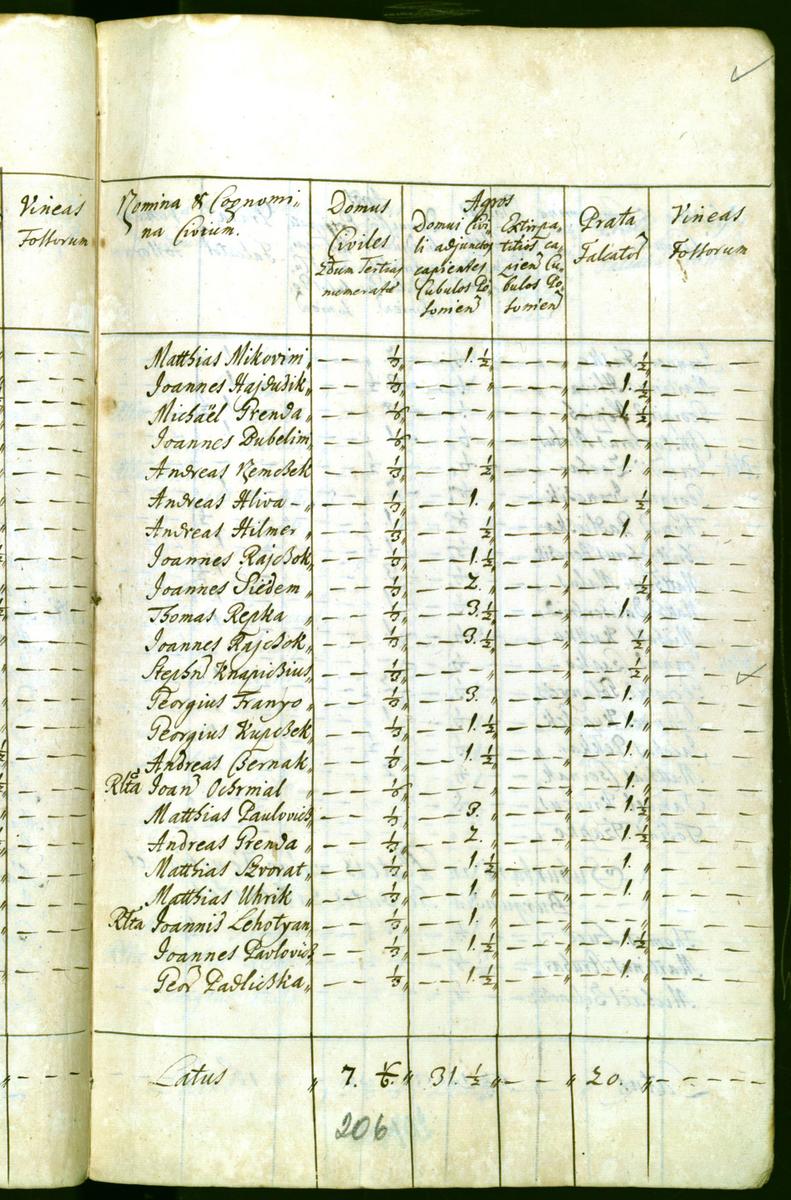 Vineas
Fossorum
Nomina & Cognomi„
na Civium.
Domus
Civiles
2dum Tertias
numeratæ
Agros
Domui Civi„
li adjunctos
capientes
Cubulos Po„
sonien
Extirpa„
titios ca„
pien Cu„
bulos Po„
sonien
Prata
Falcator
Vineas
Fossorum
Matthias Mikovini „ — — ⅓ „ — — 1. ½ „ — — „ — — ½ „ — — — —
Joannes Hajdusik „ — — ⅓ „ — — „ — — „ — — 1. ½ „ — — — —
Michaël Grenda „ — — ⅙ „ — — „ — — „ — — 1 ½ „ — — — —
Joannes Dubelim „ — — ⅙ „ — — „ — — „ — — „ — — — —
Andreas Nemcsek — — ⅓ „ — — ½ „ — — „ — — 1. „ — — — —
Andreas Hliva — „ — — ⅓ „ — — 1. „ — — „ — — ½ „ — — — —
Andreas Hilmer „ — — ⅓ „ — — ½ „ — — „ — — 1. „ — — — —
Joannes Rajcsok „ — — ⅓ „ — — 1. ½ „ — — „ — — „ — — — —
Joannes Siedem „ — — ⅓ „ — — 2. „ — — „ — — ½ „ — — — —
Thomas Repka „ — — ⅓ „ — — 3. ½ „ — — „ — — 1. „ — — — —
Joannes Rajcsok „ — — ⅓ „ — — 3. ½ „ — — „ — — ½ „ — — — —
Stephn Knapicsius „ — — ⅓ „ — — „ — — „ — — ½ „ — — — —
Georgius Franyo „ — — ⅓ „ — — 3. „ — — „ — — 1. „ — — — —
Georgius Kupcsek „ — — ⅓ „ — — 1. ½ „ — — „ — — 1. „ — — — —
Andreas Csernak „ — — ⅓ „ — — 1. ½ „ — — „ — — 1. „ — — — —
Rlta Joan Ochrmal „ — — ⅙ „ — — „ — — „ — — 1. „ — — — —
Matthias Paulovics „ — — ⅓ „ — — 3. „ — — „ — — 1. ½ „ — — — —
Andreas Grenda „ — — ⅓ „ — — 2. „ — — „ — — 1. ½ „ — — — —
Matthias Szvorat „ — — ⅓ „ — — 1. ½ „ — — „ — — 1. „ — — — —
Matthias Uhrik „ — — ⅓ „ — — 1. „ — — „ — — 1. „ — — — —
Rlta Joannis Lehotyan „ — — ⅓ „ — — 1. „ — — „ — — „ — — — —
Joannes Pavlovics — — ⅓ „ — — 1. ½ „ — — „ — — 1. ½ „ — — — —
Geor Padlicska „ — — ⅓ „ — — 1. ½ „ — — „ — — 1. „ — — — —
Latus „ 7. ⅙. „ 31. ½ „ — — „ 20. „ — — — —
206